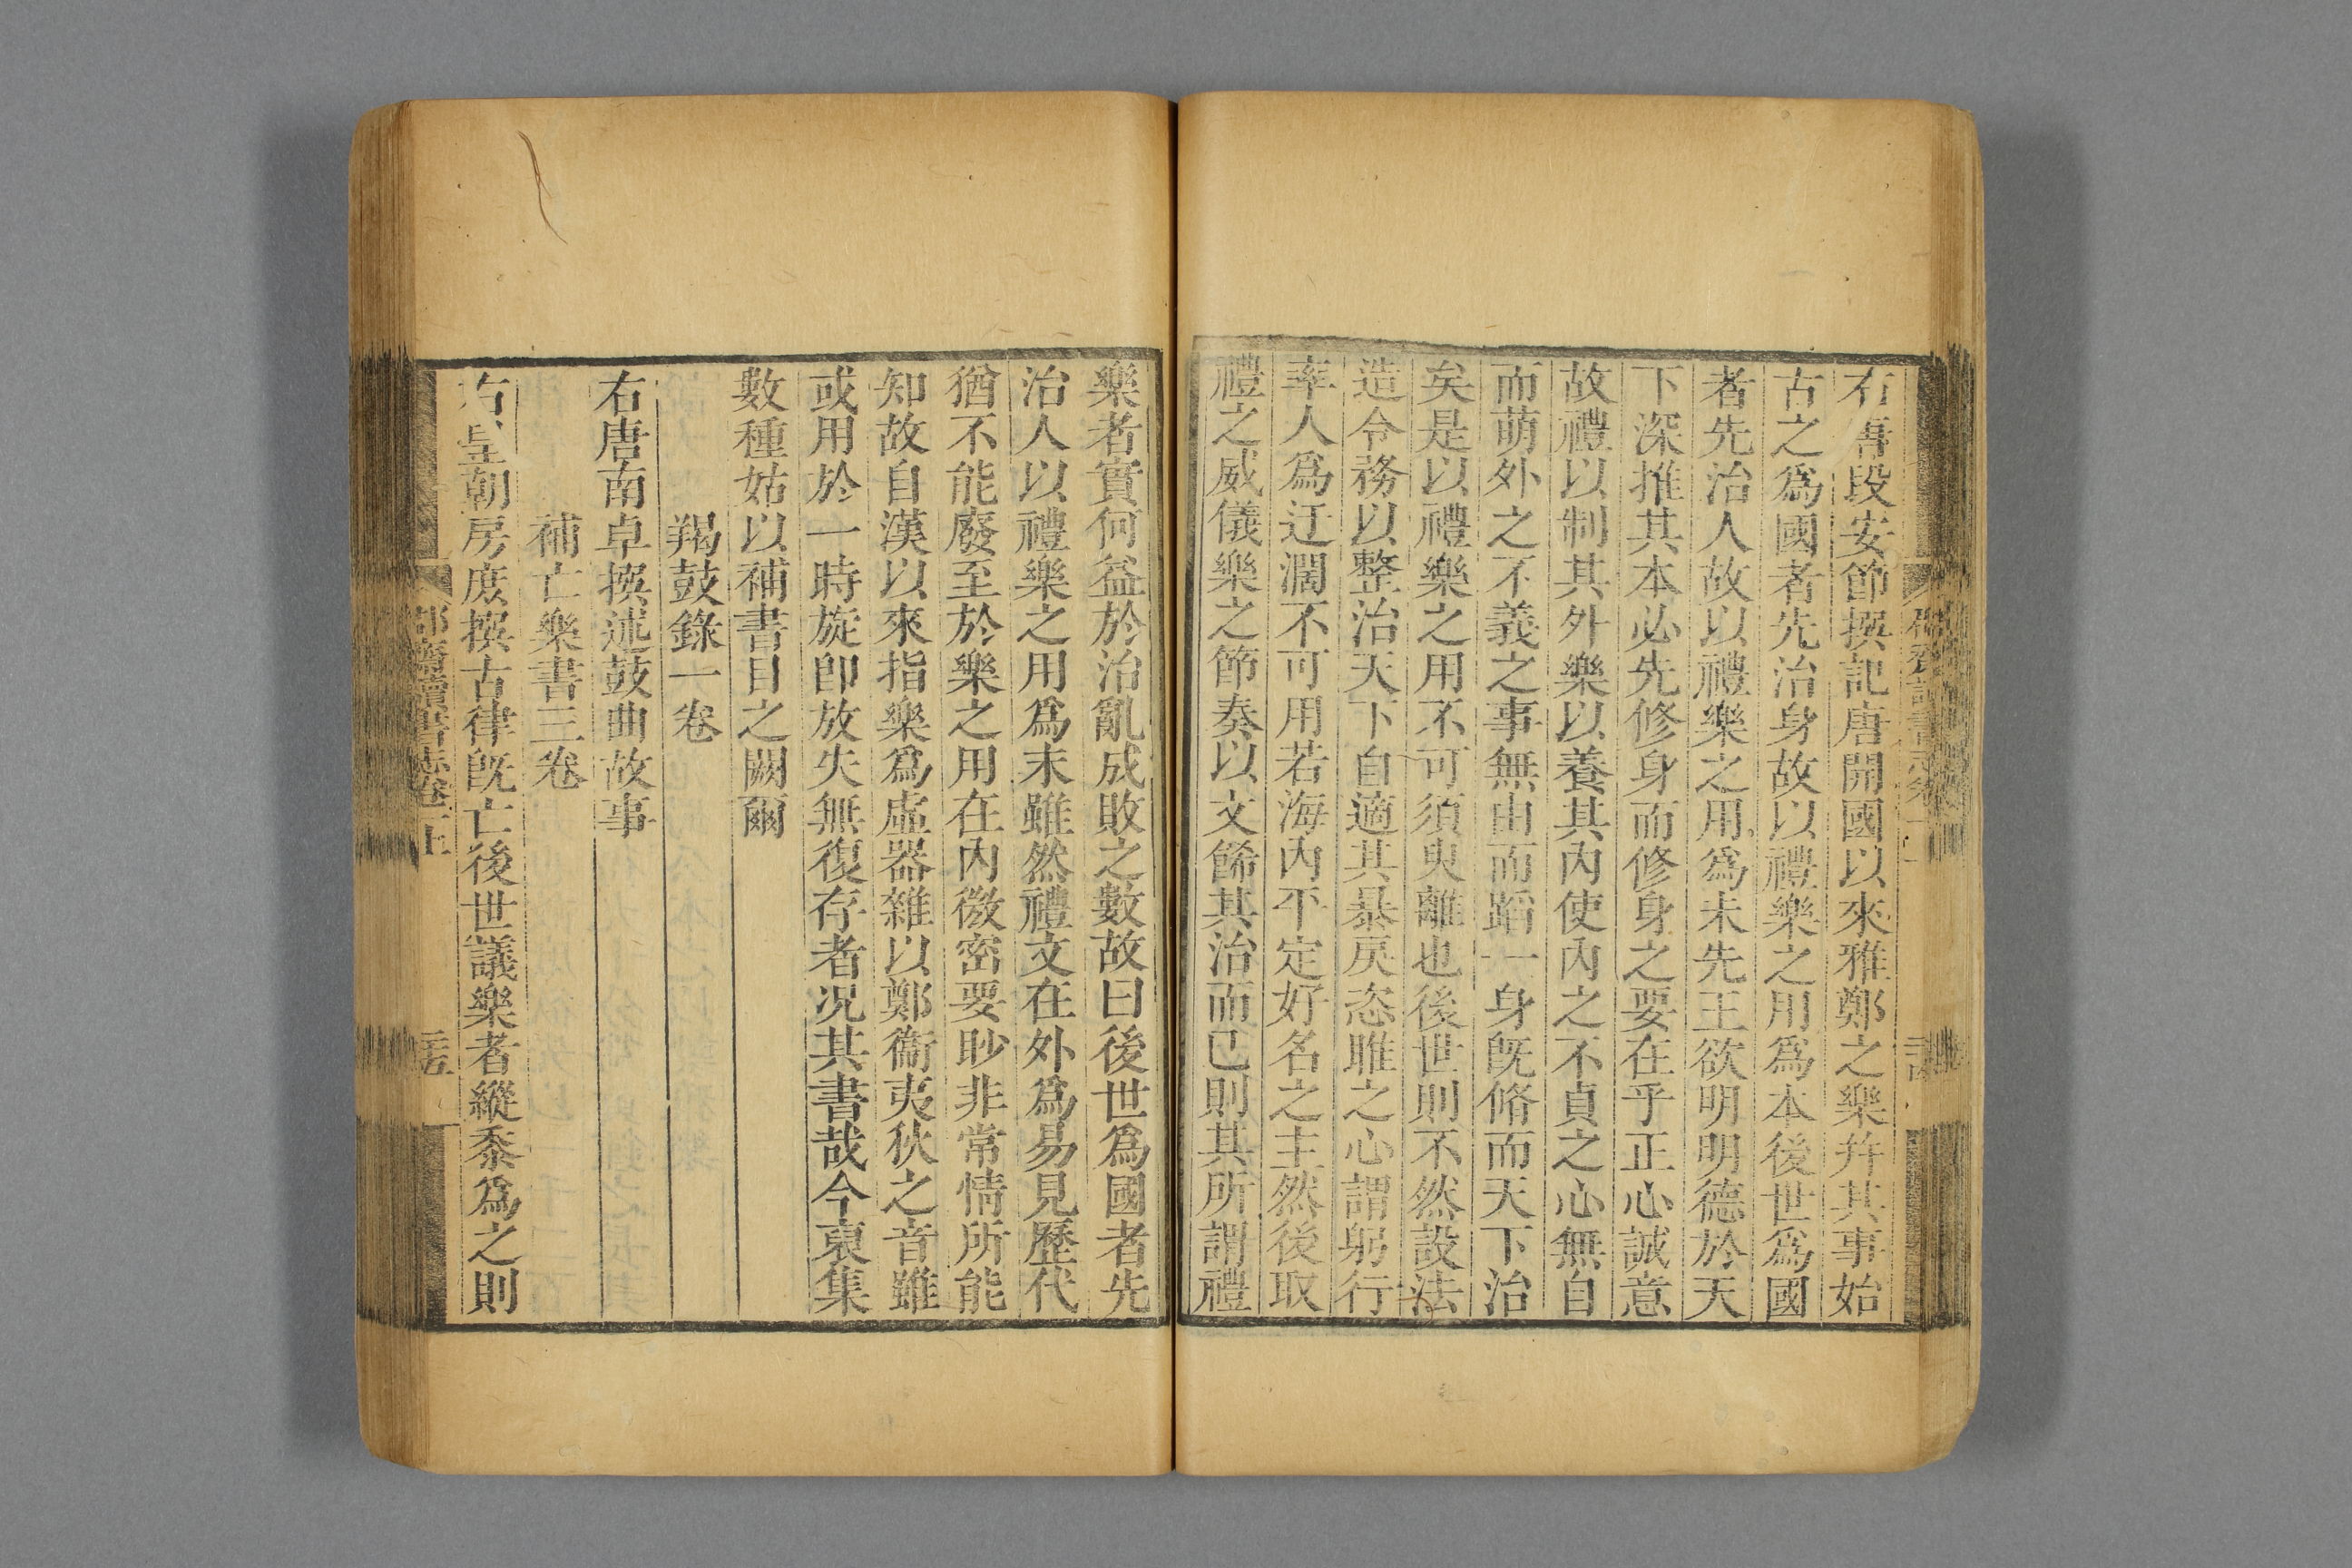 右唐段安節撰記唐開國以來雅鄭之樂并其事始
古之爲國者先治身故以禮樂之用爲本後世爲國
者先治人故以禮樂之用爲末先王欲明明德於天
下深推其本必先修身而修身之要在乎正心誠意
故禮以制其外樂以養其內使內之不貞之心無自
而萌外之不義之事無由而蹈一身旣脩而天下治
矣是以禮樂之用不可須臾離也後世則不然設法
造令務以整治天下自適其暴戾恣睢之心謂躬行
率人爲迂濶不可用若海內平定好名之主然後取
禮之威儀樂之節奏以文餙其治而已則其所謂禮
樂者實何益於治亂成敗之數故曰後世爲國者先
治人以禮樂之用爲末雖然禮文在外爲易見歷代
猶不能廢至於樂之用在內微密要眇非常情所能
知故自漢以來指樂爲虛器雜以鄭衞夷狄之音雖
或用於一時旋卽放失無復存者况其書哉今裒集
數種姑以補書目之闕爾
羯鼓錄一卷
右唐南卓撰述鼓曲故事
補亡樂書三卷
右皇朝房庶撰古律旣亡後世議樂者縱黍爲之則
郡齋讀書志卷一上